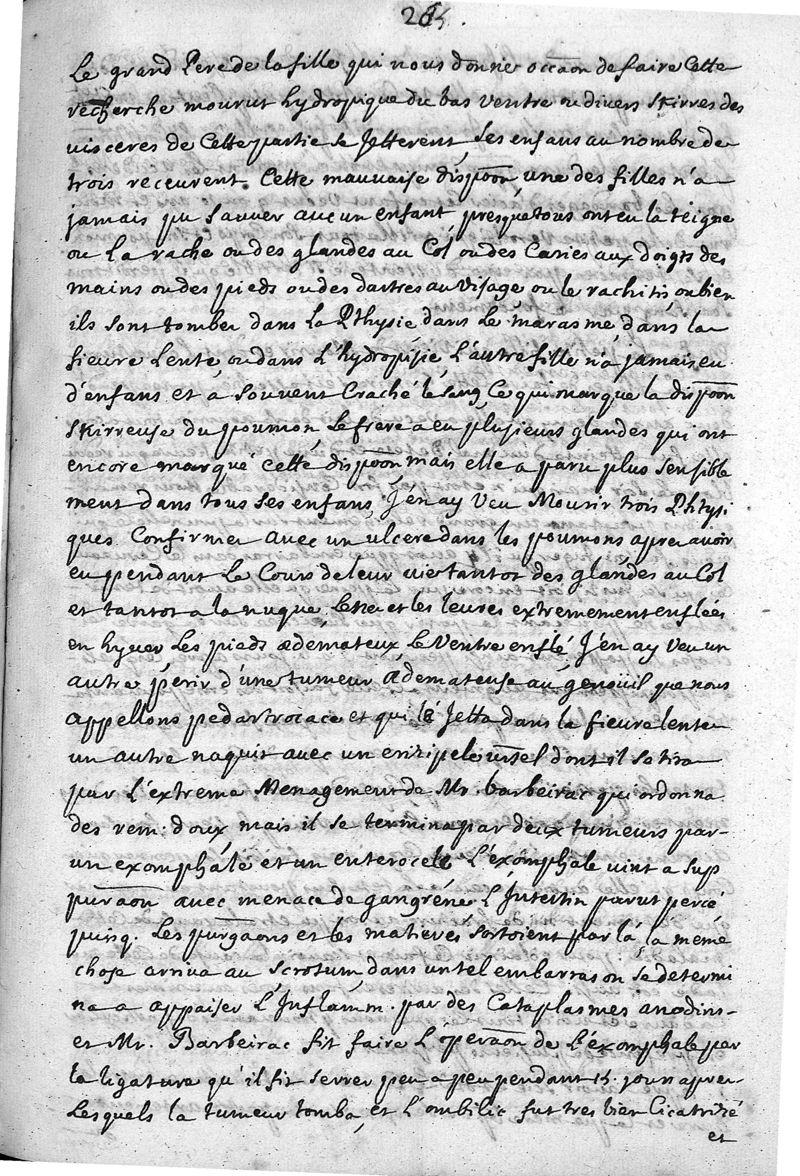 Le grand Pere de la fille qui nous donne occãon de faire Cette
recherche mourut hydropique du bas ventre ou divers skirres des
visceres de Cette partie se Jetterent, ses enfans au nombre de
trois receurent Cette mauvaise dispõon, une des filles n'a
jamais pu sauver aucun enfant, presque tous ont eu la teigne
ou la rache ou des glandes au Col ou des Caries aux doigts des
mains ou des pieds ou des dartres au Visage ou le rachitis ou bien
ils sont tombez dans La Phtysie dans le marasme, dans la
fievre lente, ou dans L'hydropisie L'autre fille n'a jamais eu
d'enfans et a souvent Craché le sang, Ce qui marque la dispõon
skirreuse du poumon, Le frere a eu plusieurs glandes qui ont
encore marqué cette dispõon, mais elle a paru plus sensible
ment dans tous ses enfans, J'en ay Veu Mourir trois Phtysi
ques Confirmez avec un ulcere dans les poumons aprez avoir
eu pendant Le Cours de leur vie tantot des glandes au Col
et tantot a la nuque, le nez et les levres extremement enflées
en hyver Les pieds ædemateux, Le Ventre enflé J'en ay Veu un
autre perir d'une tumeur ædemateuse au genoüil que nous
appellons pedartrocace et qui le Jetta dans la fievre lente
un autre naquit avec un erizipele ũsel dont il se tira
par L'extreme Menagement de Mr. barbeirac qui ordonna
des rem: doux mais il se termina par deux tumeurs par
un exomphale et un enterocele L'exomphale vint a sup
purãon avec menace de gangréne L'Intestin parut percé
puisq. Les purgãons et les matieres sortoient par là, la meme
chose arriva au scrotum, dans un tel embarras on se determi
na a appaiser L'Inflamm. par des Cataplasmes anodins
et Mr. Barbeirac fit faire L'operãon de L'exomphale par
la ligature qu'il fit serrer peu a peu pendant 15. jours aprez
Lesquels la tumeur tomba, et L'ombilic fut tres bien Cicatrizé
et